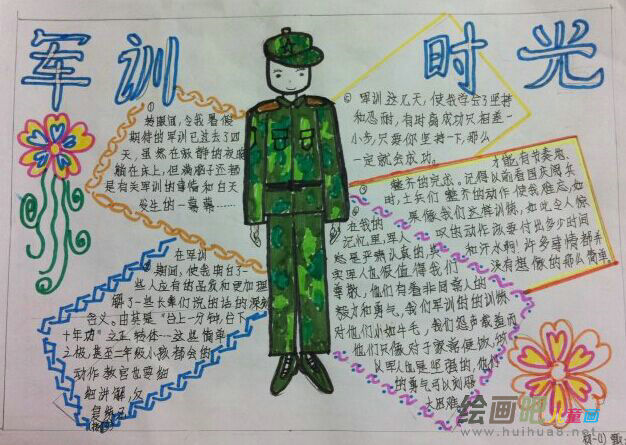 军训 时光
①
转眼间，令我暑假
期待的军训已过去了四
天，虽然在寂静的夜晚
躺在床上，但满脑子还都
是有关军训的事情和白天
发生的一幕幕……
②军训这几天，使我学会了坚持
和忍耐，有时离成功只相差一
小步，只要你坚持一下，那么
一定就会成功。
在军训
期间，使我明白了一
些人应有的品质和更加理
解了一些长辈们说的话的深刻
含义。由其是“台上一分钟，台下
十年功”
这些简单
甚至一年级小孩都会的
动作，教官也要
细讲解，反
在我的
记忆里，军人
总是严肃认真的，其
实军人也很值得我们
尊敬，他们有着非同常人的
毅力和勇气。我们军训时的训练
对他们小如牛毛，
他们只像对于家常便饭，所
以军人也是坚强的，他们
的勇气可以刻服
大困难
才能有节奏、
整齐的完成。记得以前看国庆阅兵
时，士兵们整齐的动作使我难忘，如
果像我们这样训练，如此令人惊
叹的动作该要付出多少时间
和汗水啊！许多事情都并
没有想像的那么简单。
绘画吧儿童画
www.huihua8.net